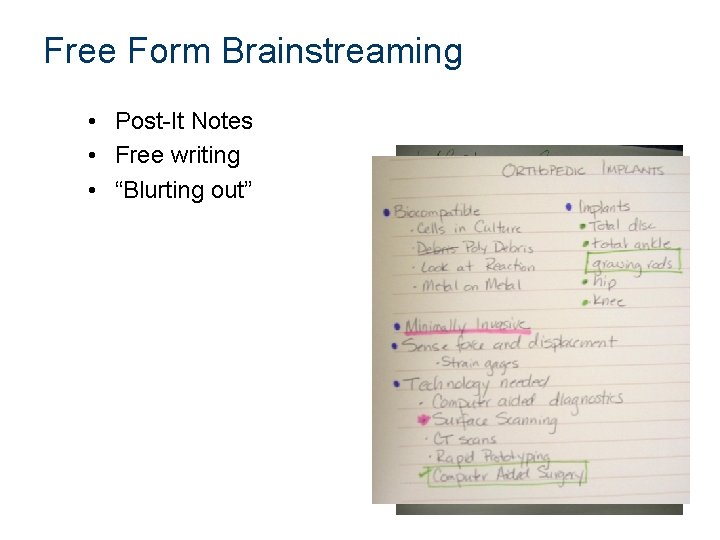 Free Form Brainstreaming
• Post-It Notes
• Free writing
• “Blurting out”
ORTHOPEDIC IMPLANTS
• Biocompatible
- Cells in Culture
- Debris Poly Debris
- Look at Reaction
- Metal on Metal
• Implants
• Total disc
• total ankle
growing rods
• hip
• knee
• Minimally Invasive
• Sense force and displacement
• Strain gages
• Technology needed
• Computer aided diagnostics
Surface Scanning
• CT scans
• Rapid Prototyping
Computer Aided Surgery